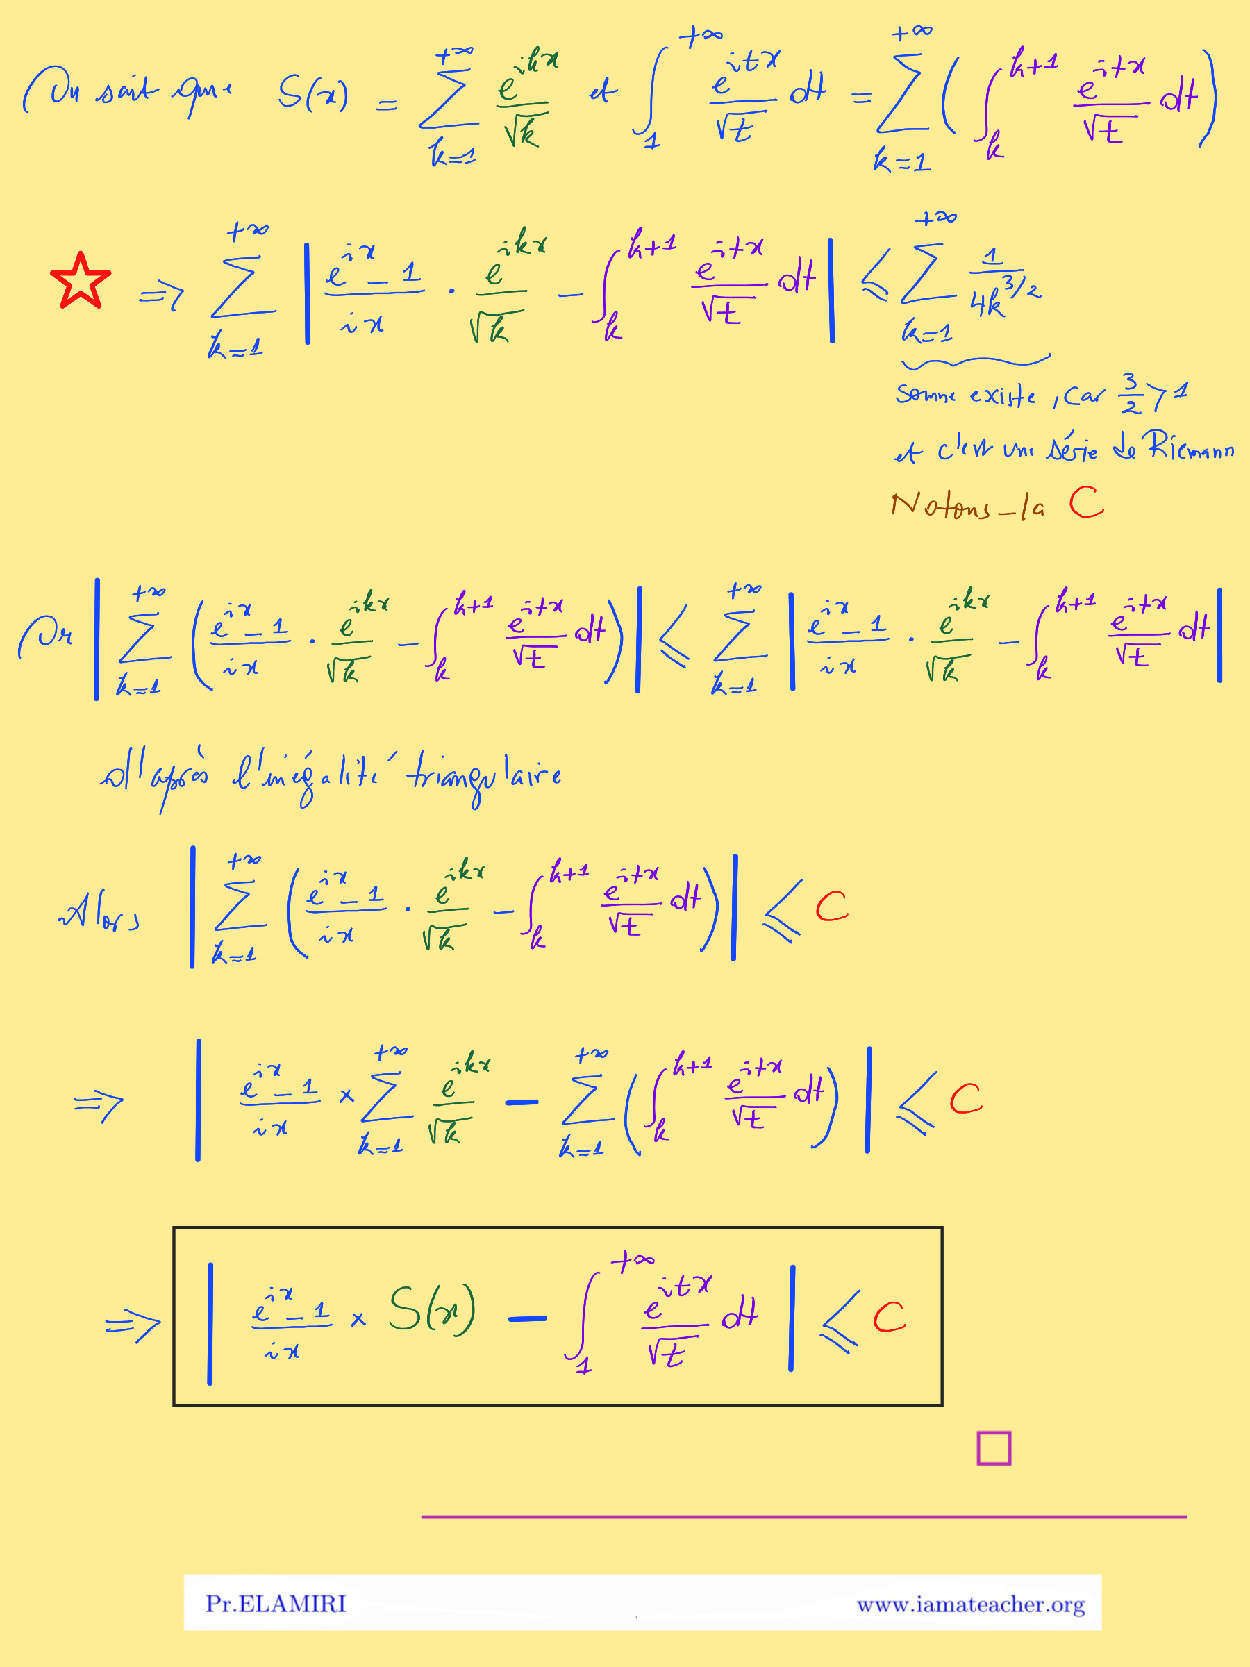 On sait que S(x) = ∑_{k=1}^{+∞} e^{ikx}/√k et ∫_1^{+∞} e^{itx}/√t dt = ∑_{k=1}^{+∞} ( ∫_k^{k+1} e^{itx}/√t dt )
☆ ⇒ ∑_{k=1}^{+∞} | (e^{ix} - 1)/(ix) · e^{ikx}/√k - ∫_k^{k+1} e^{itx}/√t dt | ⩽ ∑_{k=1}^{+∞} 1/(4k^{3/2})
Somme existe, car 3/2 > 1
et c'est une série de Riemann
Notons-la C
Or | ∑_{k=1}^{+∞} ( (e^{ix} - 1)/(ix) · e^{ikx}/√k - ∫_k^{k+1} e^{itx}/√t dt ) | ⩽ ∑_{k=1}^{+∞} | (e^{ix} - 1)/(ix) · e^{ikx}/√k - ∫_k^{k+1} e^{itx}/√t dt |
d'après l'inégalité triangulaire
Alors | ∑_{k=1}^{+∞} ( (e^{ix} - 1)/(ix) · e^{ikx}/√k - ∫_k^{k+1} e^{itx}/√t dt ) | ⩽ C
⇒ | (e^{ix} - 1)/(ix) × ∑_{k=1}^{+∞} e^{ikx}/√k - ∑_{k=1}^{+∞} ( ∫_k^{k+1} e^{itx}/√t dt ) | ⩽ C
⇒ | (e^{ix} - 1)/(ix) × S(x) - ∫_1^{+∞} e^{itx}/√t dt | ⩽ C
□
Pr.ELAMIRI www.iamateacher.org